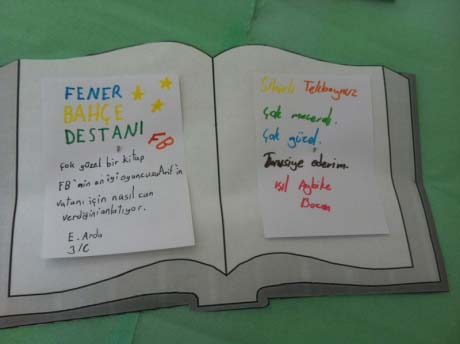 FENER
BAHÇE
DESTANI
FB
çok güzel bir kitap
FB'nin en iyi oyuncusu Arif'in
vatanı için nasıl can
verdiğini anlatıyor.
E. Arda
3/C
Sihirli Tekboynuz
çok maceralı.
çok güzel.
Tavsiye ederim.
Işıl Aybike